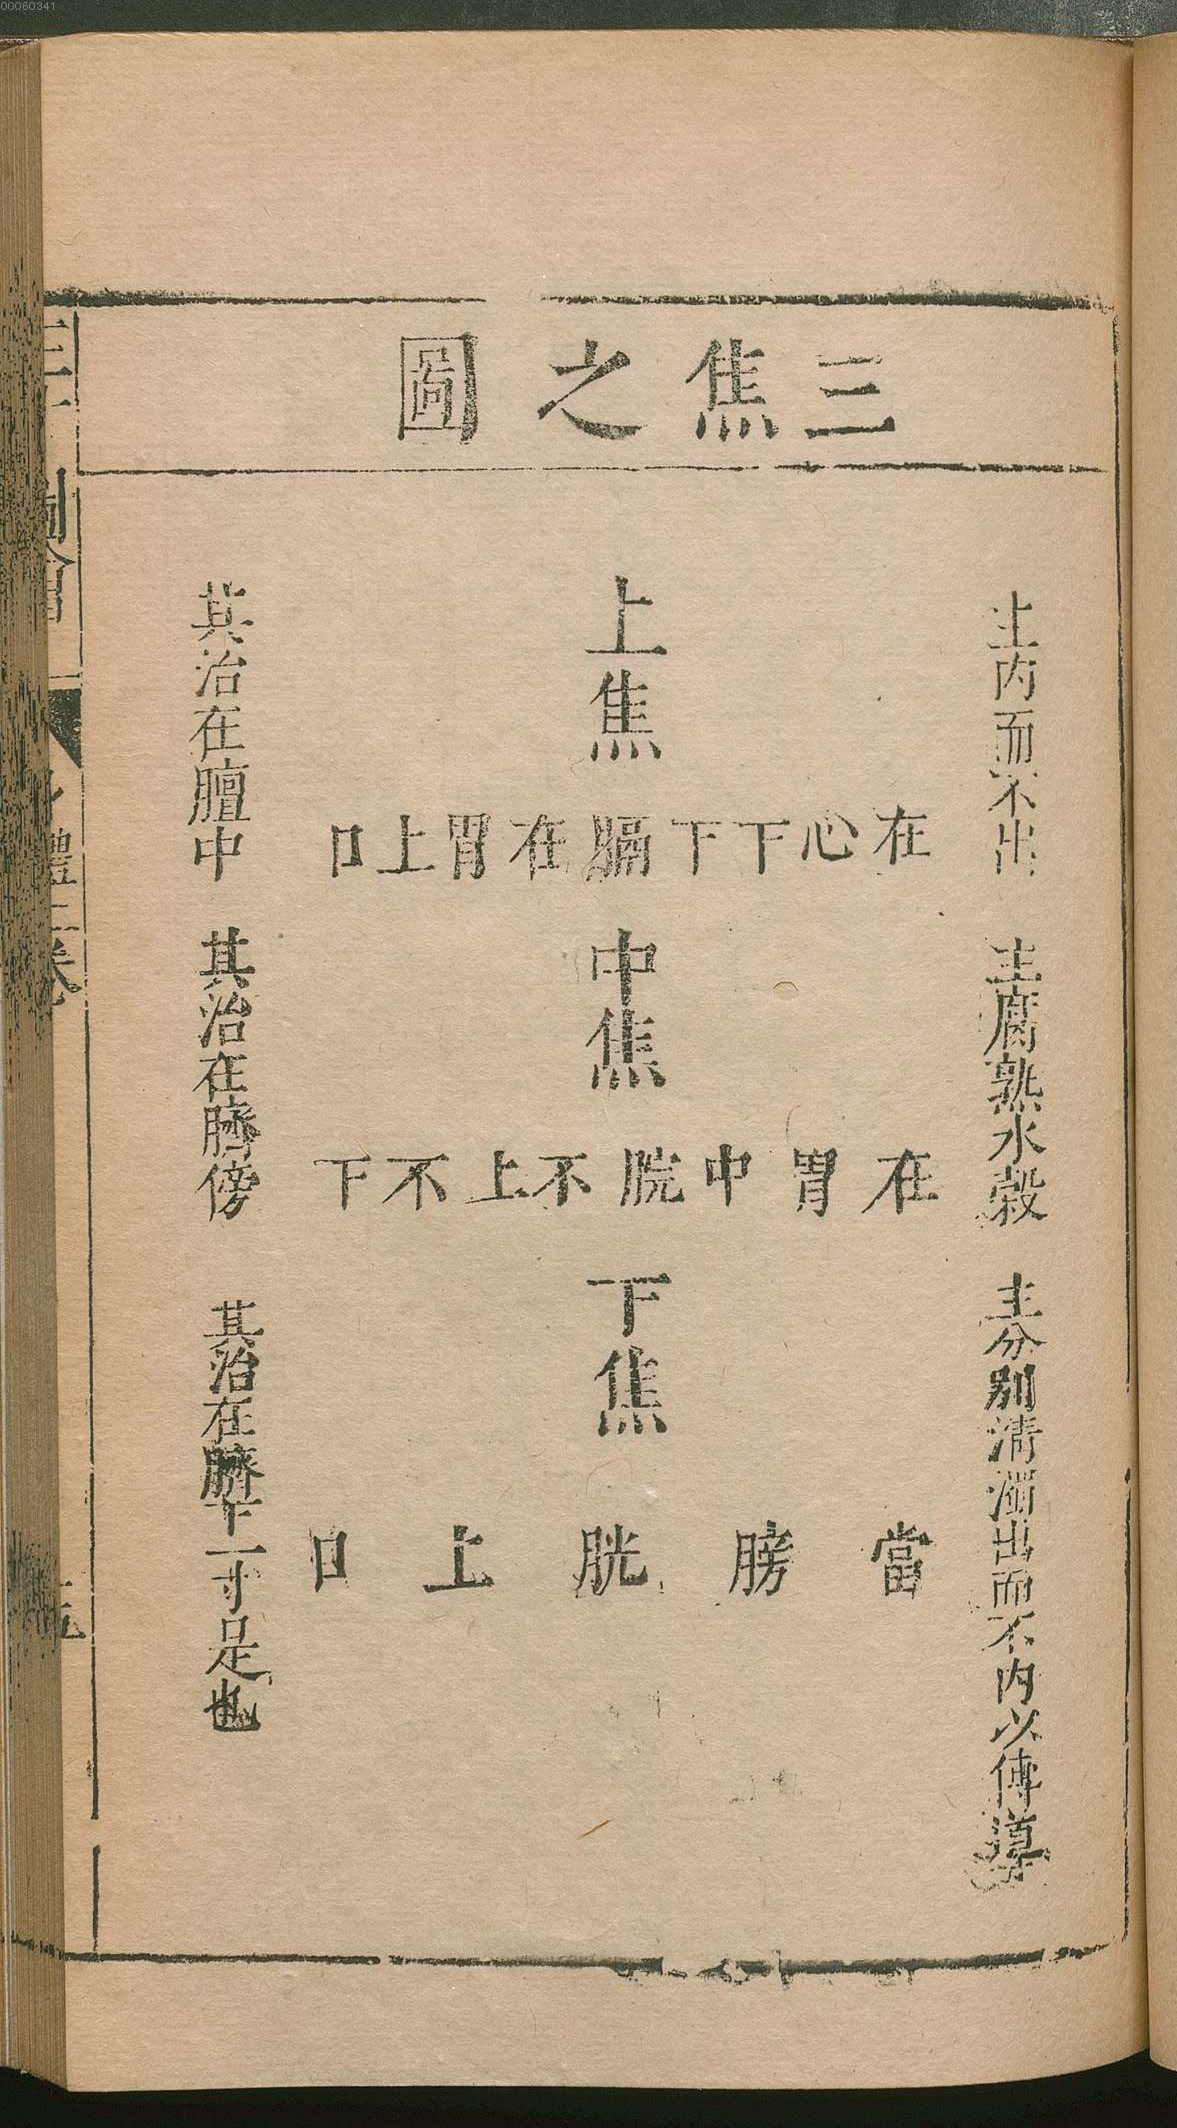 00060341
三焦之圖
主内而不出
主腐熟水榖
主分别清濁出而不内以傳導
上焦
在心下下膈在胃上口
中焦
在胃中脘不上不下
下焦
當膀胱上口
其治在膻中
其治在臍傍
其治在臍下一寸足也
體二卷